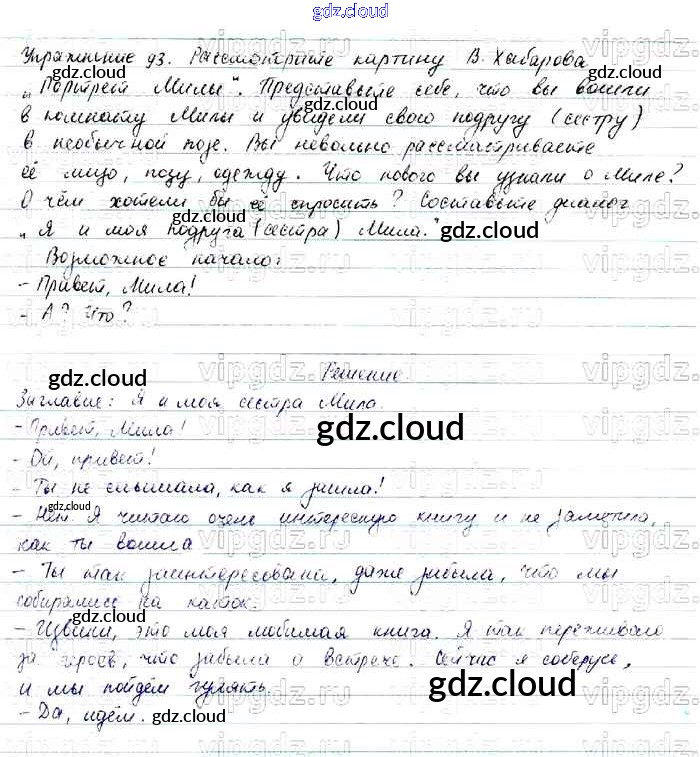 gdz.cloud
Упражнение 93. Рассмотрите картину В. Хабарова
„Портрет Милы“. Представьте себе, что вы вошли
в комнату Милы и увидели свою подругу (сестру)
в необычной позе. Вы невольно рассматриваете
её лицо, позу, одежду. Что нового вы узнали о Миле?
О чём хотели бы её спросить? Составьте диалог
„Я и моя подруга (сестра) Мила.“
Возможное начало:
- Привет, Мила!
- А? Что?
Решение.
Заглавие: Я и моя сестра Мила.
- Привет, Мила!
- Ой, привет!
- Ты не слышала, как я зашла!
- Нет. Я читаю очень интересную книгу и не заметила,
как ты вошла
- Ты так заинтересована, даже забыла, что мы
собирались на каток.
- Извини, это моя любимая книга. Я так переживаю
за героев, что забыла о встрече. Сейчас я соберусь,
и мы пойдём гулять.
- Да, идём.